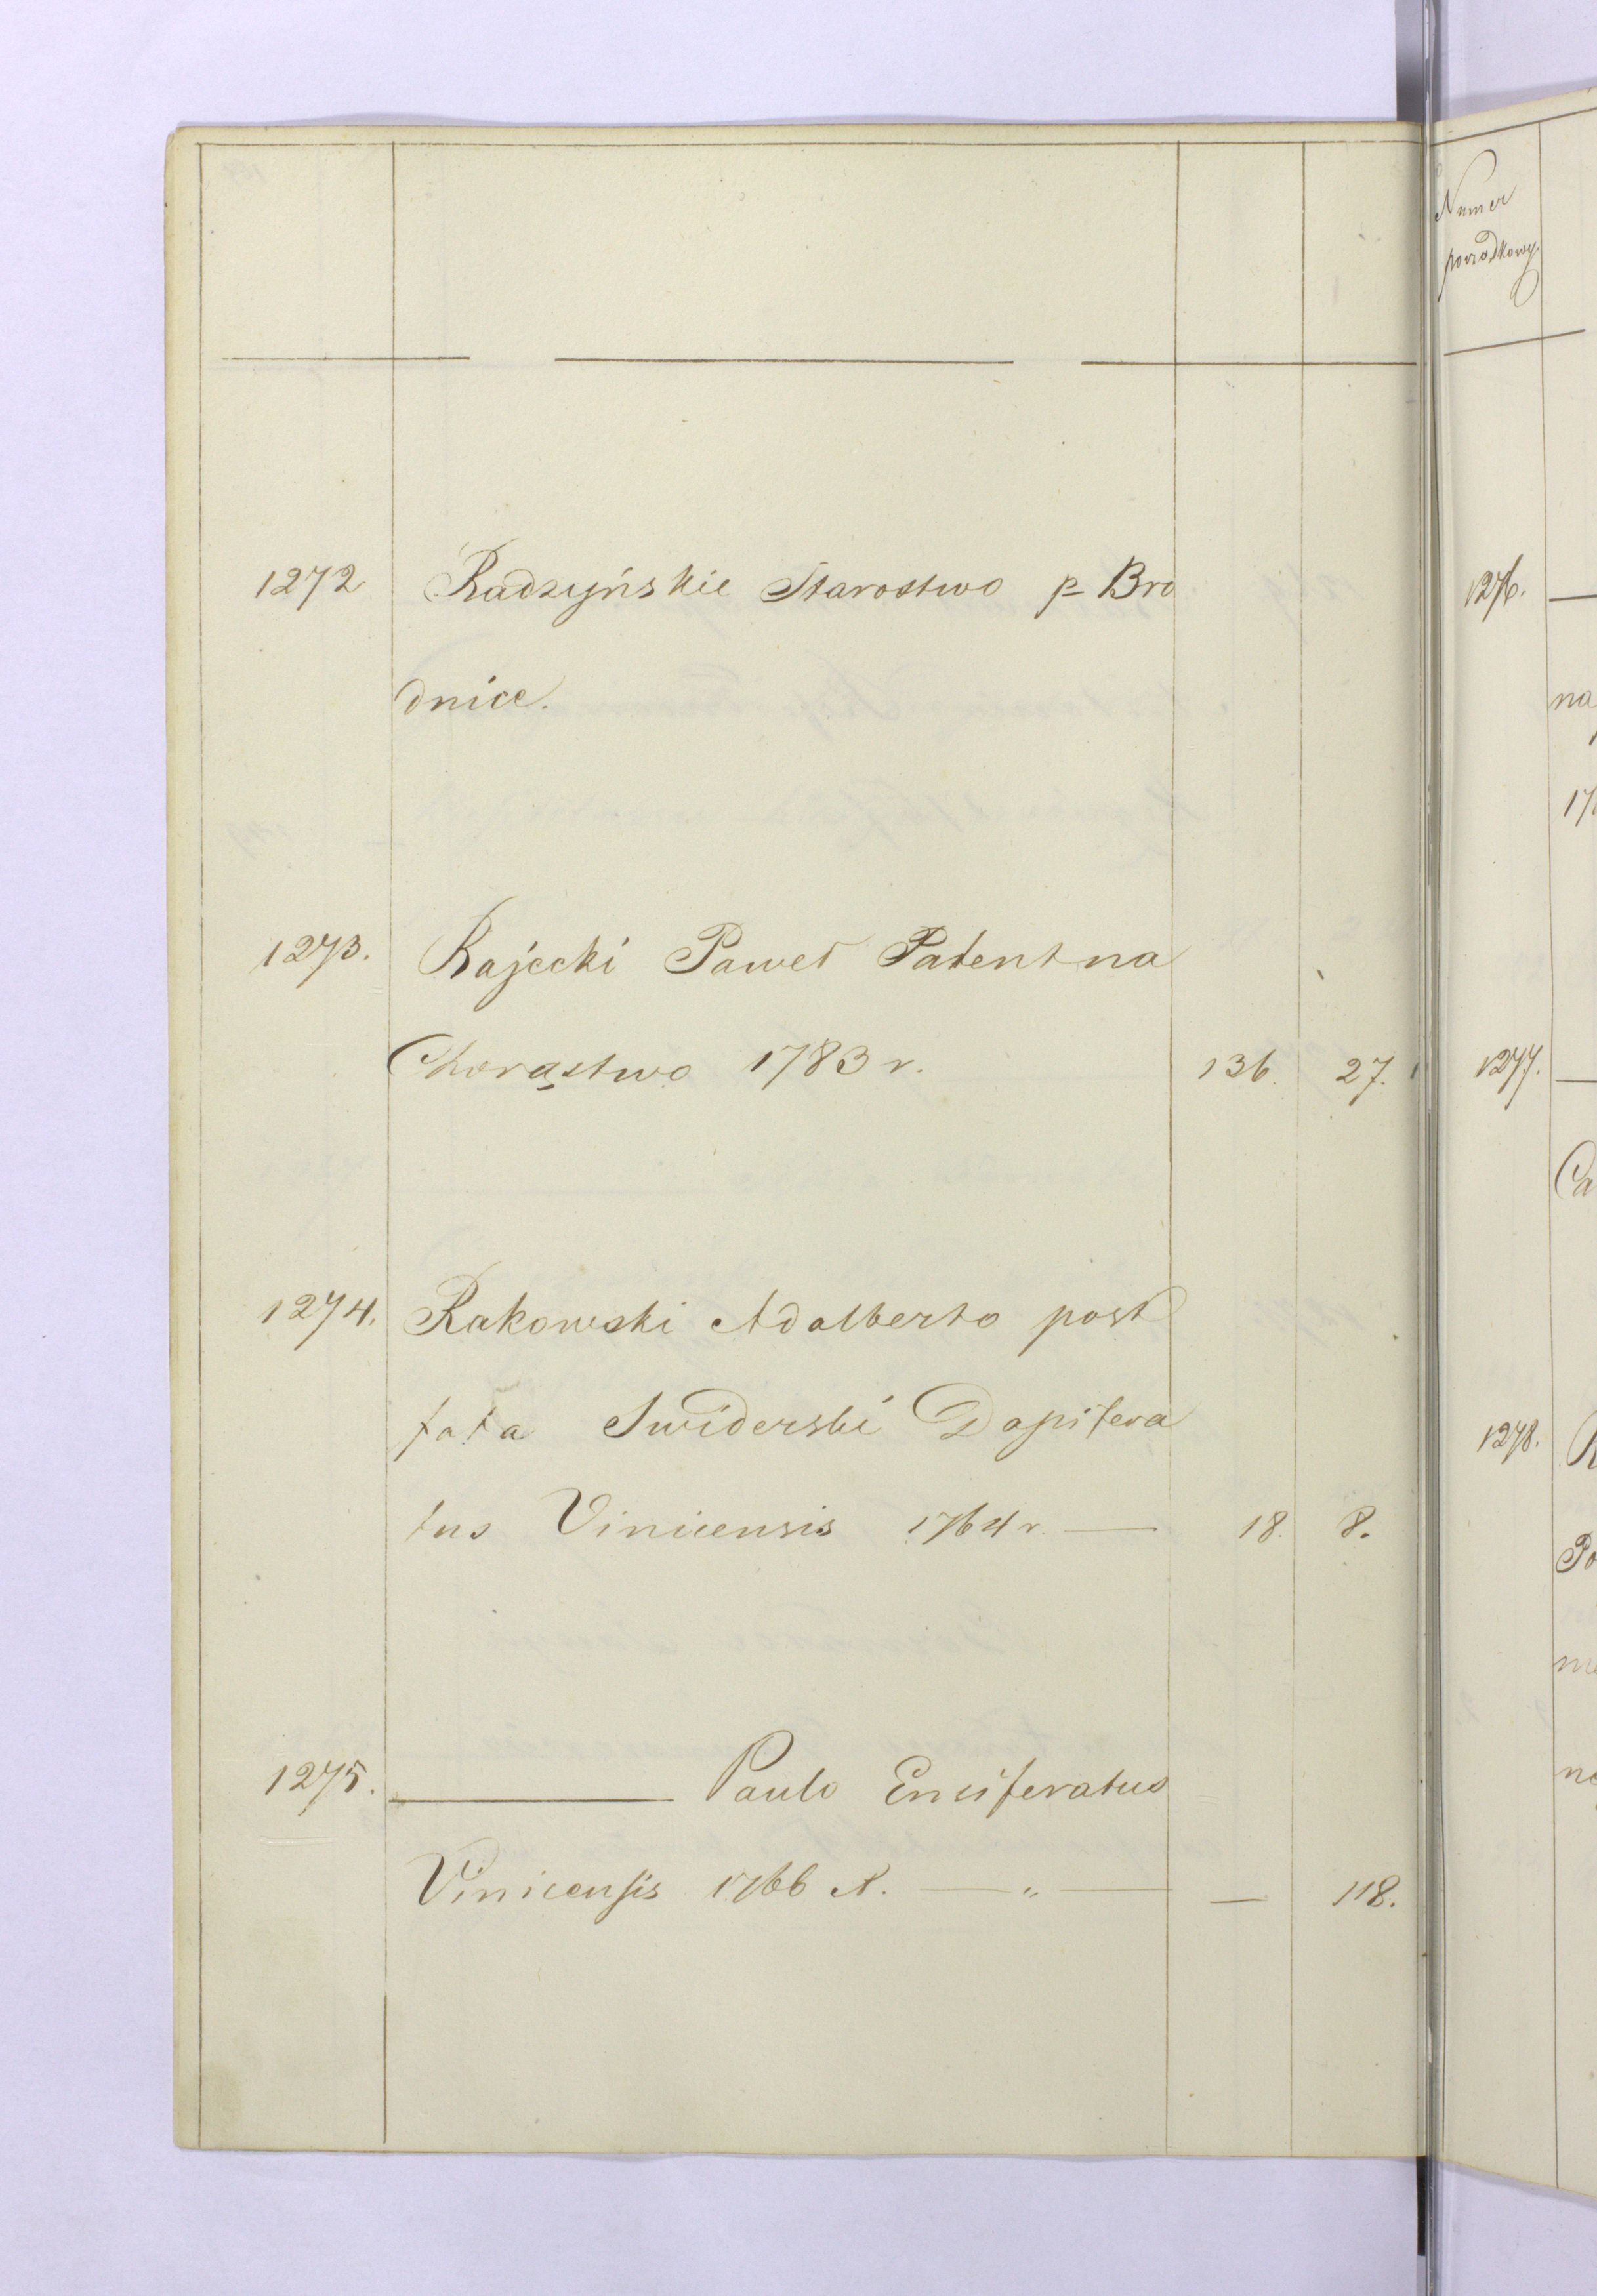 1272 Radzyńskie Starostwo p= Bro
dnice.
1273. Rajecki Paweł Patent na
Chorąstwo 1783 r. 136. 27.
1274. Rakowski Adalberto post
fata Swiderski Dapifera
tus Vinicensis 1764 r. — 18. 8.
1275. ——— Paulo Ensiferatus
Vinicensis 1766 r. — „ — — 118.
Numer
porządkowy.
1276. —
na
17
1277. —
Ca
1278. R
Po